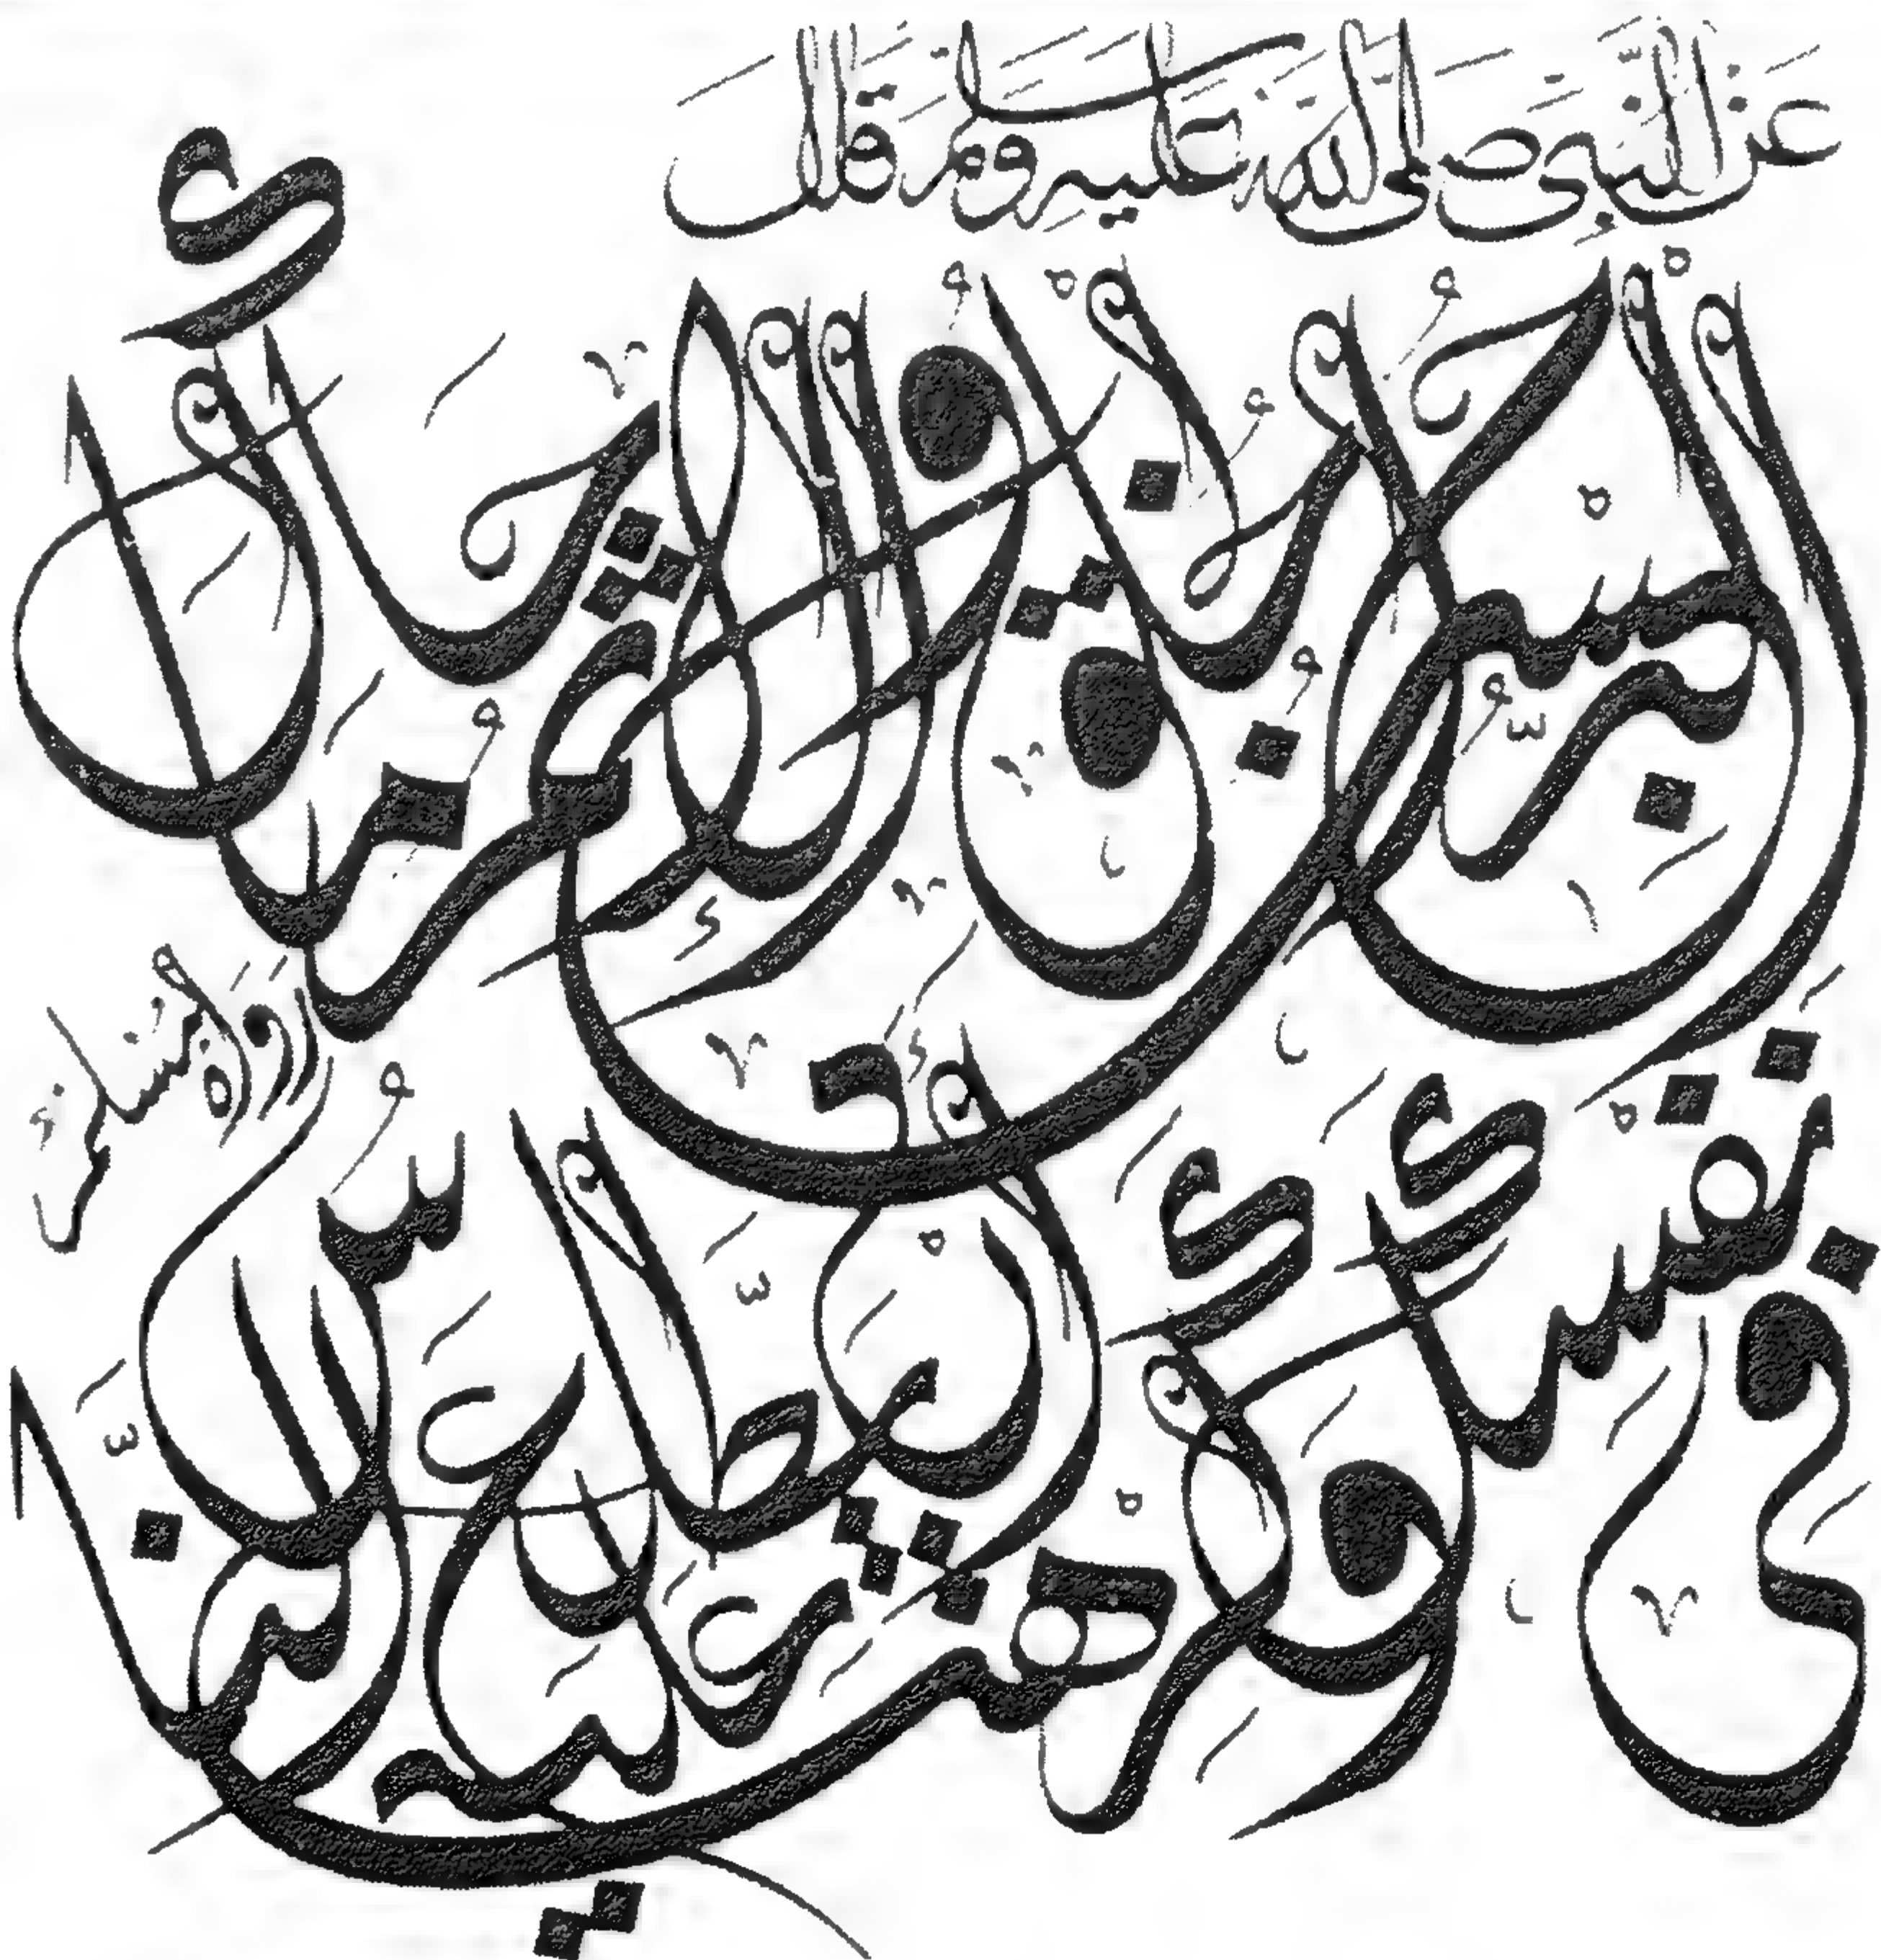 عَنِ النَّبِيِّ صَلَّى اللهُ عَلَيْهِ وَسَلَّمَ قَالَ
الْبِرُّ حُسْنُ الْخُلُقِ وَالْإِثْمُ مَا حَاكَ
فِي نَفْسِكَ وَكَرِهْتَ أَنْ يَطَّلِعَ عَلَيْهِ النَّاسُ
رَوَاهُ مُسْلِمٌ